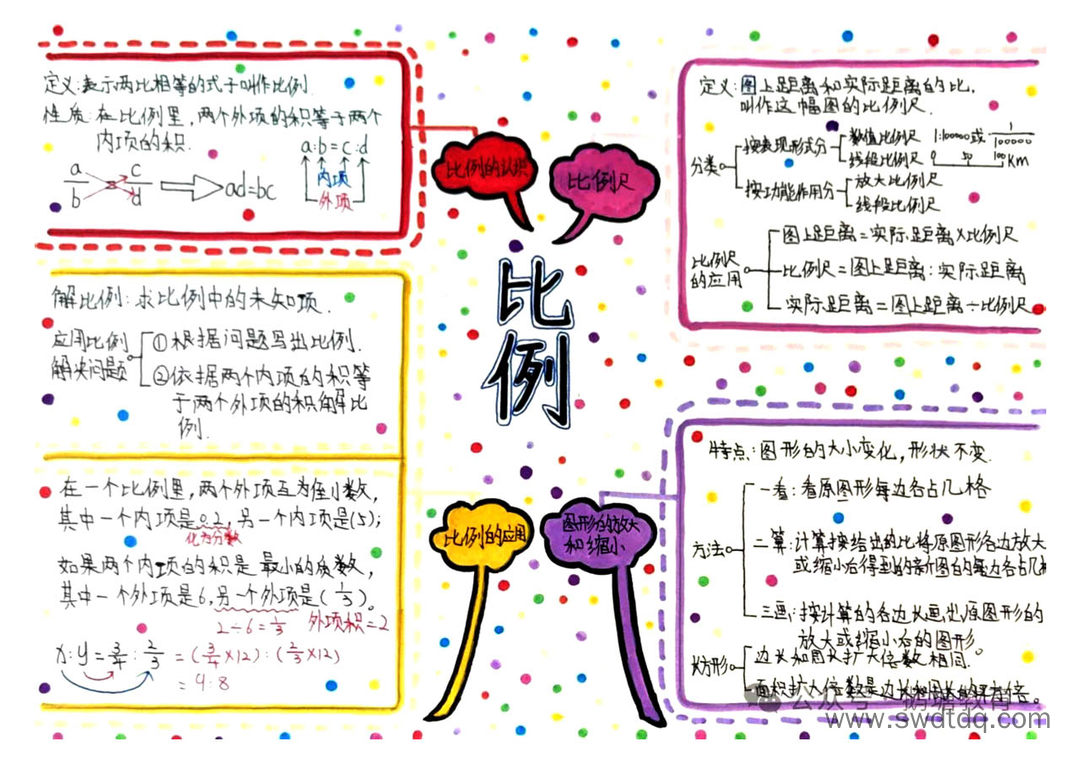 比例
比例的认识
定义:表示两比相等的式子叫作比例.
性质:在比例里,两个外项的积等于两个
内项的积.
a/b c/d ad=bc
a:b=c:d
内项
外项
比例尺
定义:图上距离和实际距离的比,
叫作这幅图的比例尺.
分类
按表现形式分
数值比例尺 1:100000或 1/100000
线段比例尺 0 50 100km
按功能作用分
放大比例尺
线段比例尺
比例尺
的应用
图上距离=实际距离×比例尺
比例尺=图上距离:实际距离
实际距离=图上距离÷比例尺
比例的应用
解比例:求比例中的未知项.
应用比例
解决问题
①根据问题写出比例.
②依据两个内项的积等
于两个外项的积解比
例.
在一个比例里,两个外项互为倒数,
其中一个内项是0.2,另一个内项是(5);
化为分数
如果两个内项的积是最小的质数,
其中一个外项是6,另一个外项是(1/3)。
2÷6=1/3 外项积=2
x:y=3/4:2/3=(3/4×12):(2/3×12)
=9:8
图形的放大
和缩小
特点:图形的大小变化,形状不变.
方法
一看:看原图形每边各占几格
二算:计算按给出的比将原图形各边放大
或缩小后得到的新图的每边各占几
三画:按计算的各边长画出原图形的
放大或缩小后的图形.
长方形
边长和周长扩大倍数相同.
面积扩大倍数是边长和周长的平方倍。
公众号
www.swdtdq.com